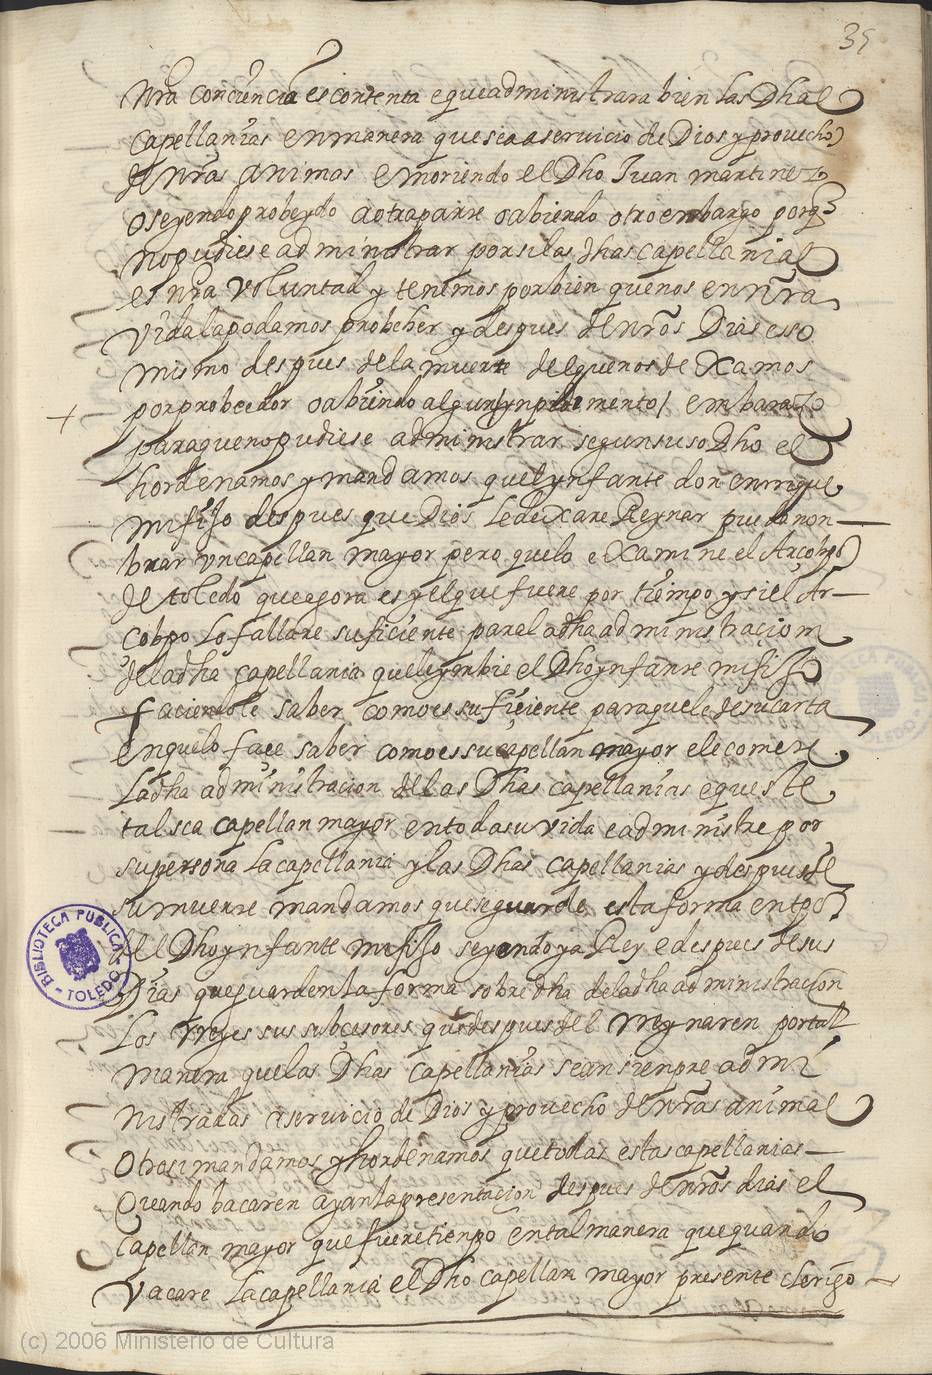 35
nrã conciencia es contenta e que administrara bien las Dhas
capellanias en manera que sea a serviçio de Dios y provecho
de nrãs animas e moriendo el Dho Juan martinez
o seyendo probeydo a otra parte o abiendo otro embargo porq̃
no pudiese administrar por si las dhas capellanias
es nrã voluntad y tenemos por bien que nos en nrã
vida la podamos probeher y despues de nrõs Dias eso
mismo despues de la muerte del que nos dexamos
+ por probeedor o abiendo algun ynpedimento / embarazo
para que no pudiese administrar segun suso Dho el
hordenamos y mandamos quel ynfante don enrrique
mi fijo despues que Dios le dexare Reynar pueda non—
brar un capellan mayor pero que lo examine el Arçobpo
de toledo que agora es y el que fuere por tiempo y si el Ar—
cobpo lo fallare suficiente para la dha administracion
de la dha capellania que le ymbie el Dho ynfante mi fijo
faciendole saber como es sufiçiente para que le de su carta
en que lo faça saber como es su capellan mayor e le comete
la dha administracion de las Dhas capellanias e que este
tal sea capellan mayor en toda su vida e administre por
su persona la capellania y las Dhas capellanias y despues de
su muerte mandamos que se guarde esta forma en tpõ
del Dho ynfante mi fijo seyendo ya Rey e despues de sus
Dias que guarden la forma sobredha de la dha administracion
Los rreyes sus subcesores que despues del rreynaren por tal
manera que las Dhas capellanias sean sienpre admi
nistradas a servicio de Dios y provecho de nrãs animas
Otrosi mandamos y hordenamos que todas estas capellanias—
Quando bacaren ayan la presentaçion despues de nrõs dias el
Capellan mayor que fuere tienpo en tal manera que quando
vacare la capellania el Dho capellan mayor presente clerigo—
BIBLIOTECA PUBLICA - TOLEDO -
(c) 2006 Ministerio de Cultura